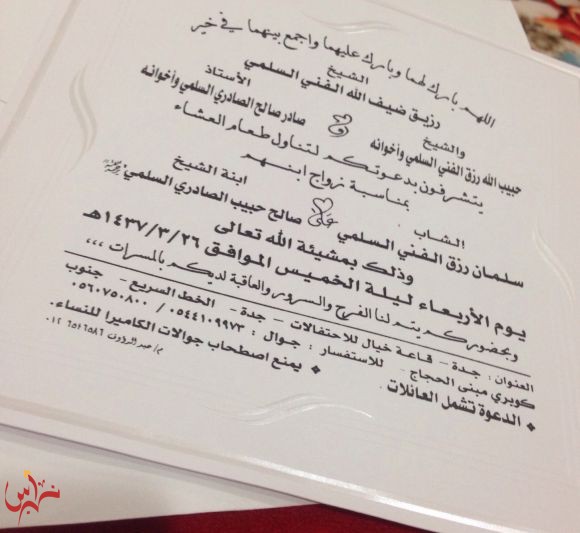 اللهم بارك لهما وبارك عليهما واجمع بينهما في خير
الشيخ
رزيق ضيف الله الفني السلمي
والشيخ
الأستاذ
حبيب الله رزق الفني السلمي وأخوانه
و
صادر صالح الصادري السلمي وأخوانه
يتشرفون بدعوتكم لتناول طعام العشاء
بمناسبة زواج ابنهم
الشاب
ابنة الشيخ
سلمان رزق الفني السلمي
على
صالح حبيب الصادري السلمي
وذلك بمشيئة الله تعالى
يوم الأربعاء ليلة الخميس الموافق ١٤٣٧/٣/٢٦هـ
وبحضوركم يتم لنا الفرح والسرور والعاقبة لديكم بالمسرات ،،،
العنوان : جدة - قاعة خيال للاحتفالات - جدة - الخط السريع - جنوب
كوبري مبنى الحجاج - للاستفسار : جوال : ٠٥٤٤١٠٩٩٧٣ / ٠٥٦٠٧٥٠٨٠٠
♦ الدعوة تشمل العائلات .
♦ يمنع اصطحاب جوالات الكاميرا للنساء.
م/عبدالرؤوف ٠١٢ ٦٥١٦٥٨٦
نبراس